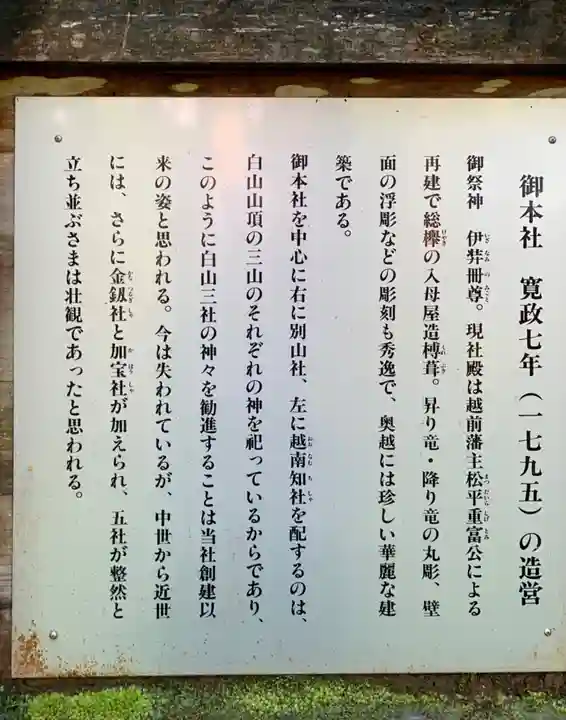 御本社　寛政七年(一七九五)の造営
御祭神　伊弉冊尊。現社殿は越前藩主松平重富公による
再建で総欅の入母屋造榑葺。昇り竜・降り竜の丸彫、壁
面の浮彫などの彫刻も秀逸で、奥越には珍しい華麗な建
築である。
御本社を中心に右に別山社、左に越南知社を配するのは、
白山山頂の三山のそれぞれの神を祀っているからであり、
このように白山三社の神々を勧進することは当社創建以
来の姿と思われる。今は失われているが、中世から近世
には、さらに金釼社と加宝社が加えられ、五社が整然と
立ち並ぶさまは壮観であったと思われる。